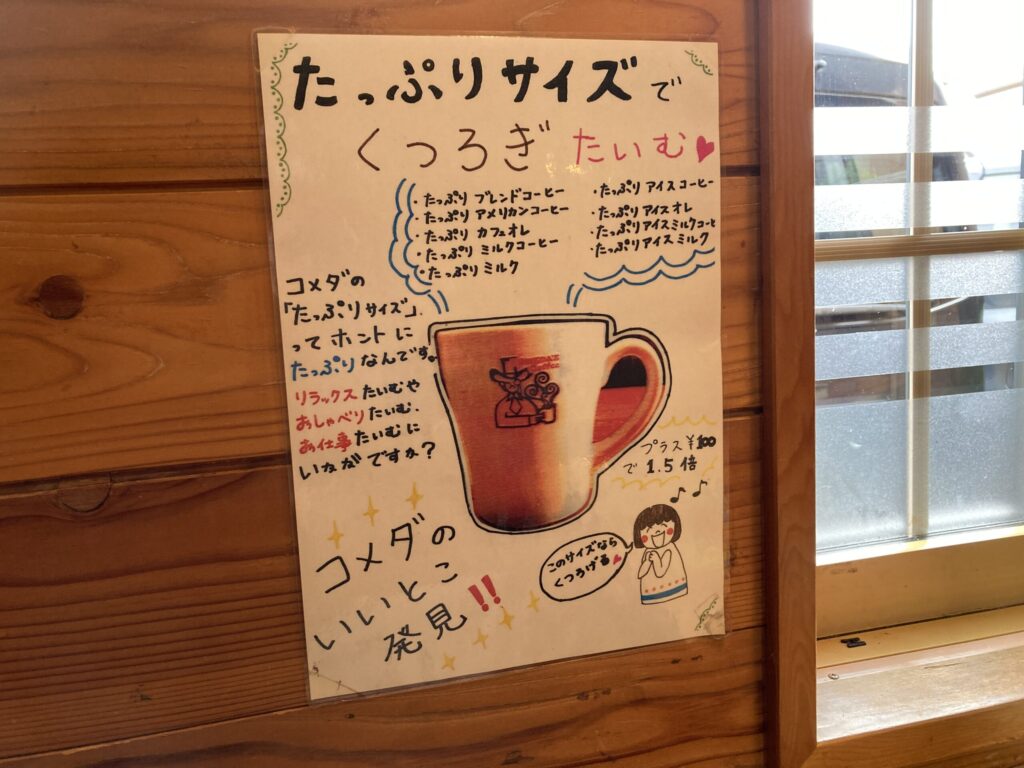 たっぷりサイズで
くつろぎ たいむ♥
・たっぷり ブレンドコーヒー
・たっぷり アメリカンコーヒー
・たっぷり カフェオレ
・たっぷり ミルクコーヒー
・たっぷり ミルク
・たっぷり アイスコーヒー
・たっぷり アイスオレ
・たっぷり アイスミルクコーヒー
・たっぷり アイスミルク
コメダの
「たっぷりサイズ」
って ホントに
たっぷりなんです。
リラックスたいむや
おしゃべりたいむ、
お仕事たいむに
いかがですか?
プラス¥100
で 1.5倍
このサイズなら
くつろげる♥
コメダの
いいとこ
発見!!